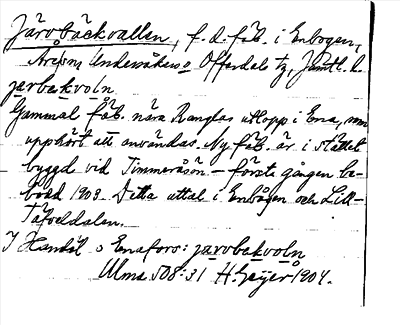 Järvbäckvallen, f.d. fäb. i Enbogen,
Åredns Undersåkers o Offerdals tg, Jämtl. l.
jarbakvoln
Gammal fäb. nära Ranglas utlopp i Ena, som
upphört att användas. Ny fäb. är i stället
byggd vid Timmeråsön. – första gången be-
bodd 1903. Detta uttal i Enbogen och Lill-
Täveldalen.
I Handöl o Enafors: jarvbakvoln
Ulma 508:31 H. Geijer 1904.